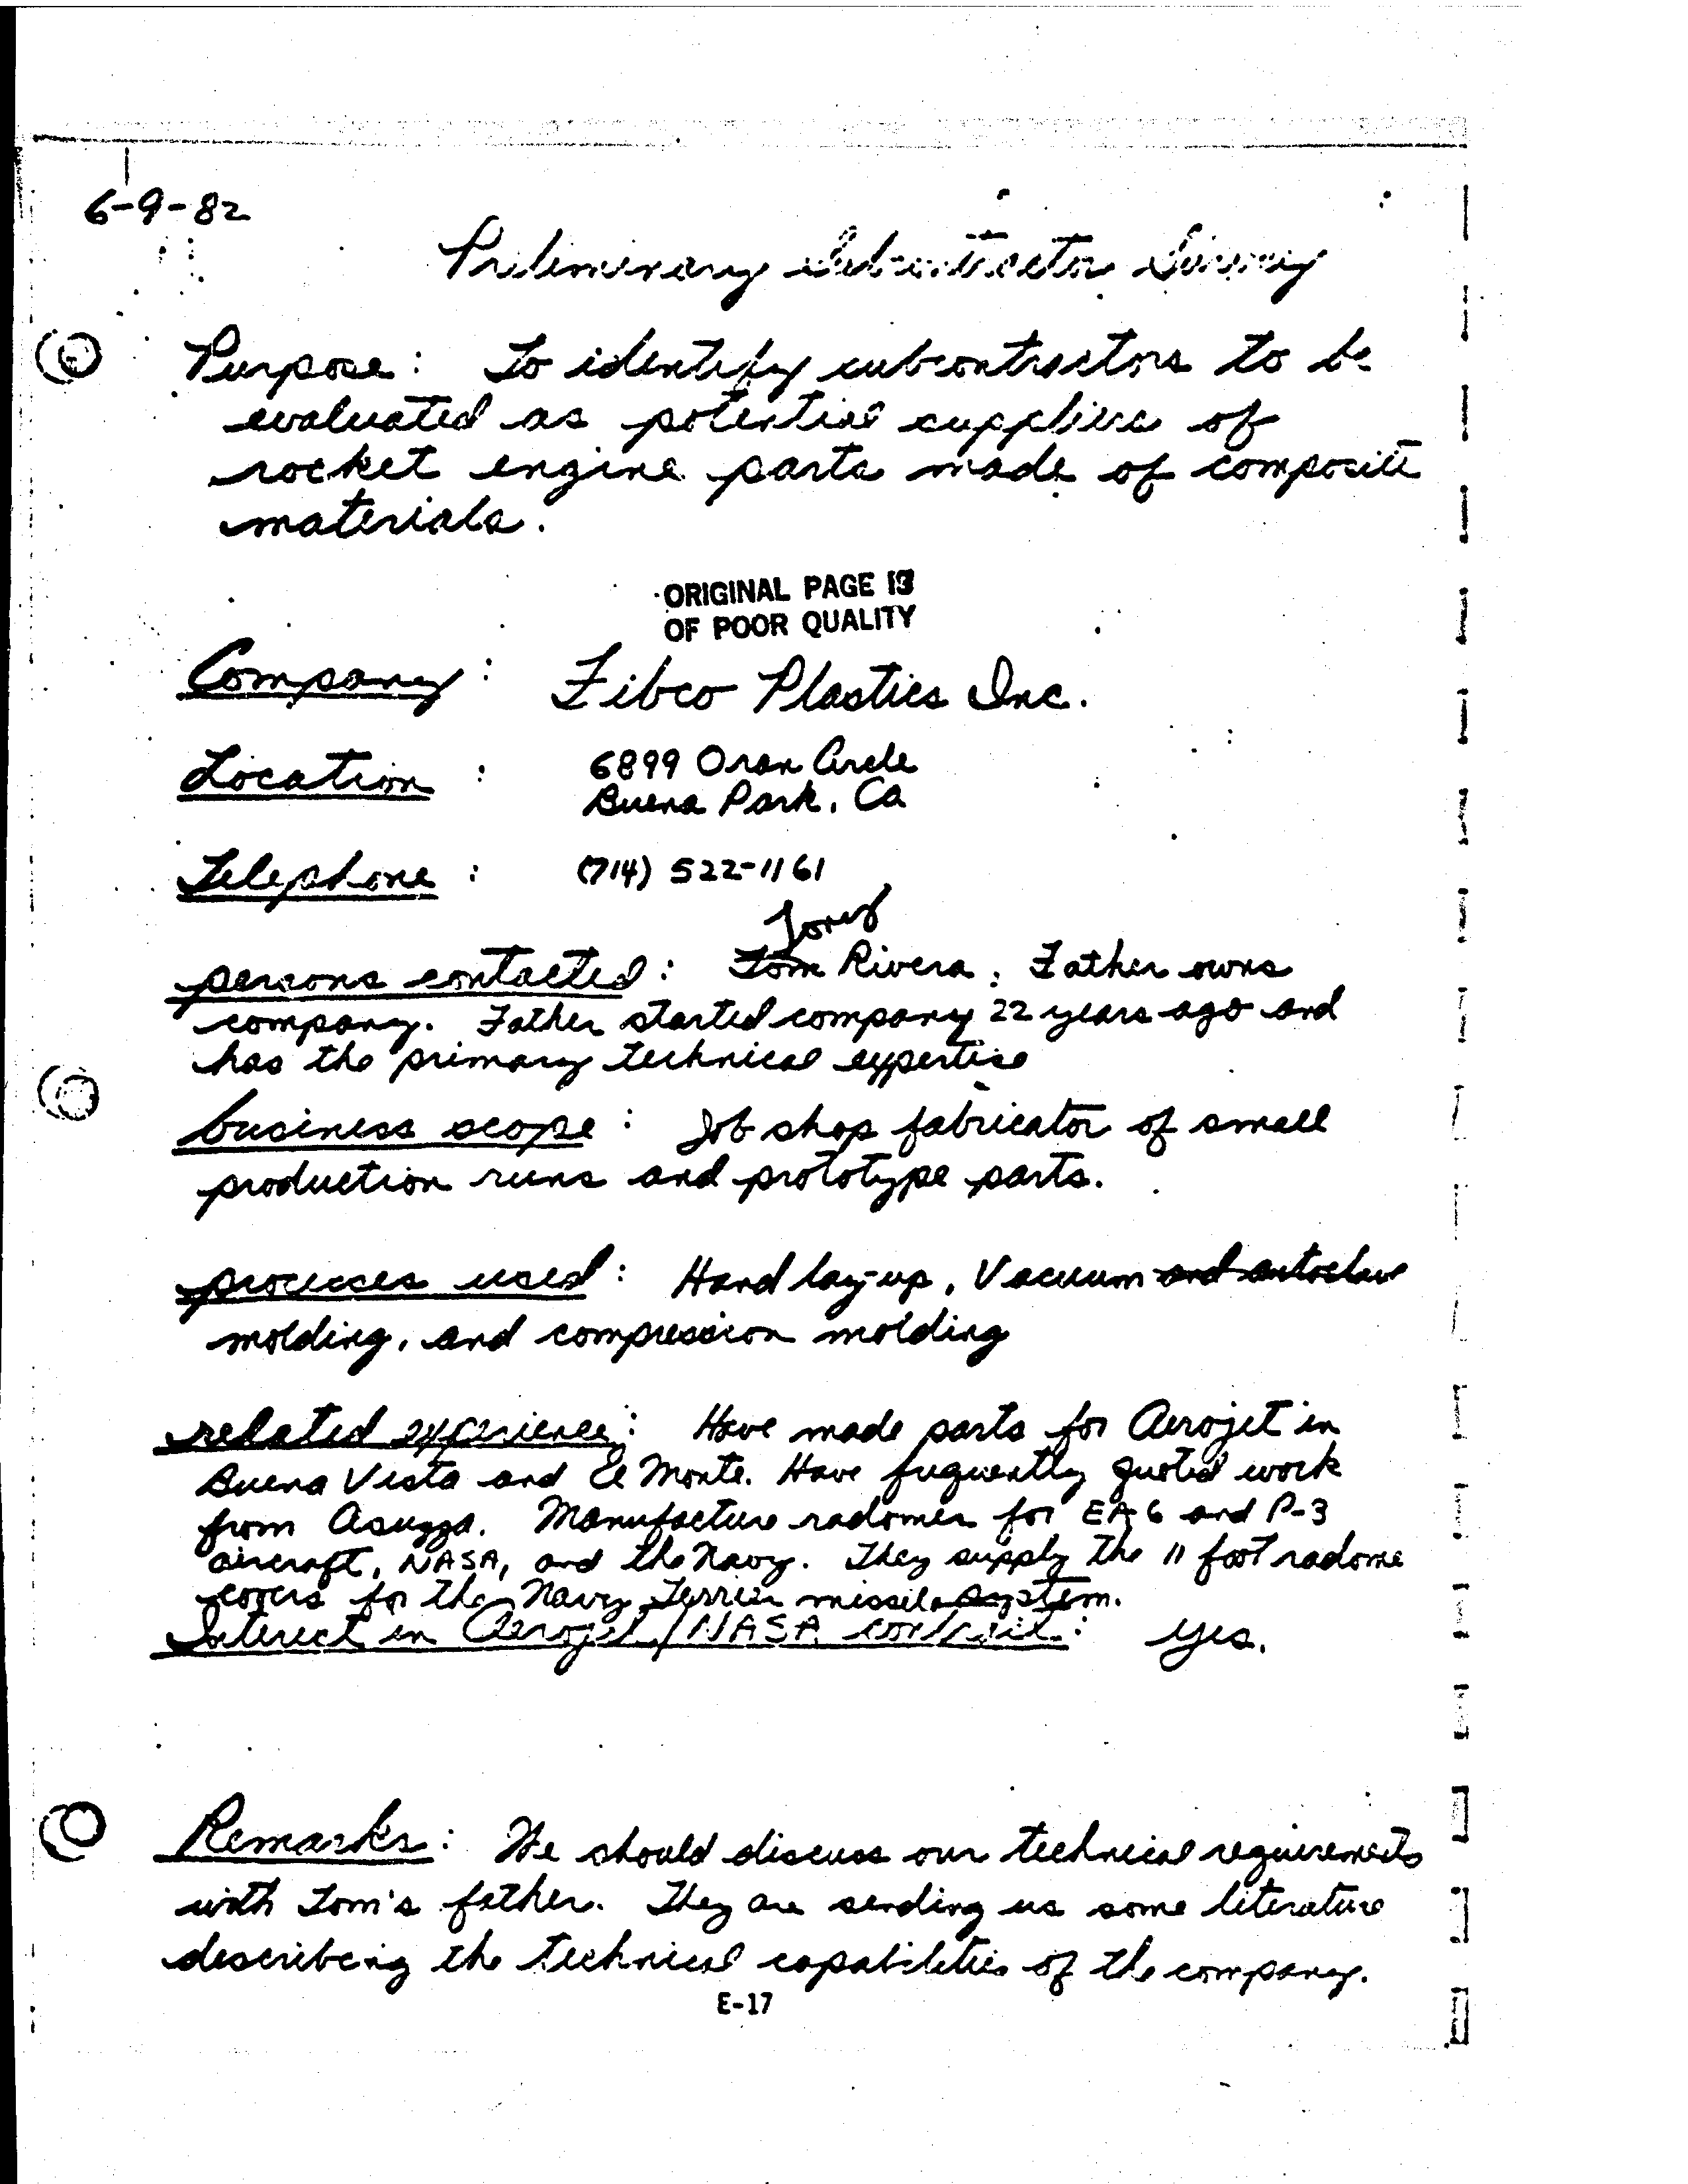 6-9-82
Preliminary Subcontractor Survey
Purpose: To identify subcontractors to be
evaluated as potential suppliers of
rocket engine parts made of composite
materials.
ORIGINAL PAGE IS
OF POOR QUALITY
Company: Fibco Plastics Inc.
Location: 6899 Oran Circle
Buena Park, Ca
Telephone: (714) 522-1161
Tony
persons contacted: Tom Rivera. Father owns
company. Father started company 22 years ago and
has the primary technical expertise
business scope: Job shop fabricator of small
production runs and prototype parts.
processes used: Hand lay-up, Vacuum and autoclave
molding, and compression molding
related experience: Have made parts for Aerojet in
Buena Vista and El Monte. Have frequently quoted work
from Asuzza. Manufacture radomes for EA6 and P-3
aircraft, NASA, and the Navy. They supply the 11 foot radome
covers for the Navy Terrier missile system.
Interest in Aerojet/NASA contract: yes.
Remarks: We should discuss our technical requirements
with Tom's father. They are sending us some literature
describing the technical capabilities of the company.
E-17